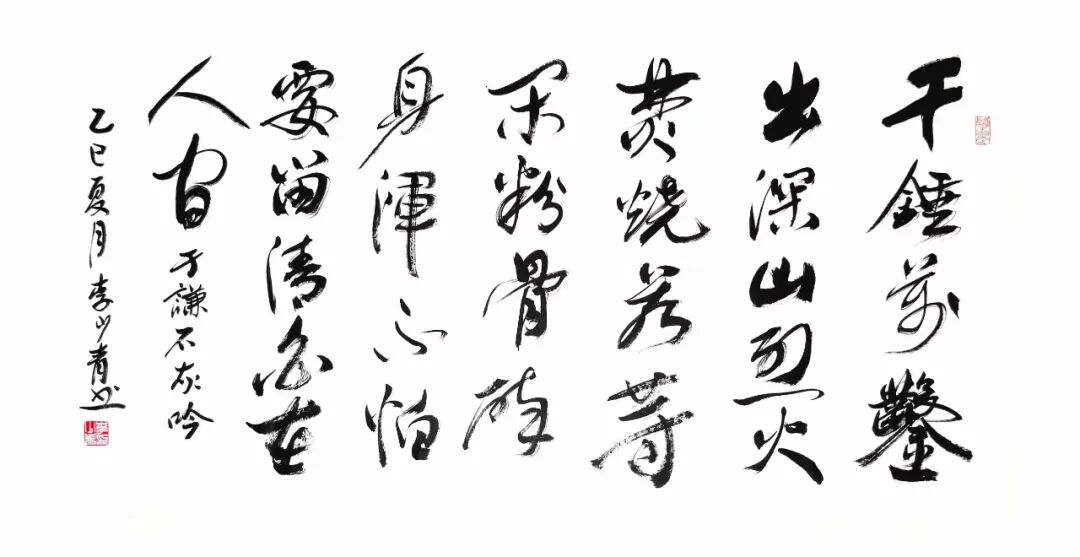 千錘萬鑿
出深山烈火
焚燒若等
閑粉骨碎
身渾不怕
要留清白在
人間
于謙石灰吟
乙巳夏月李山青书